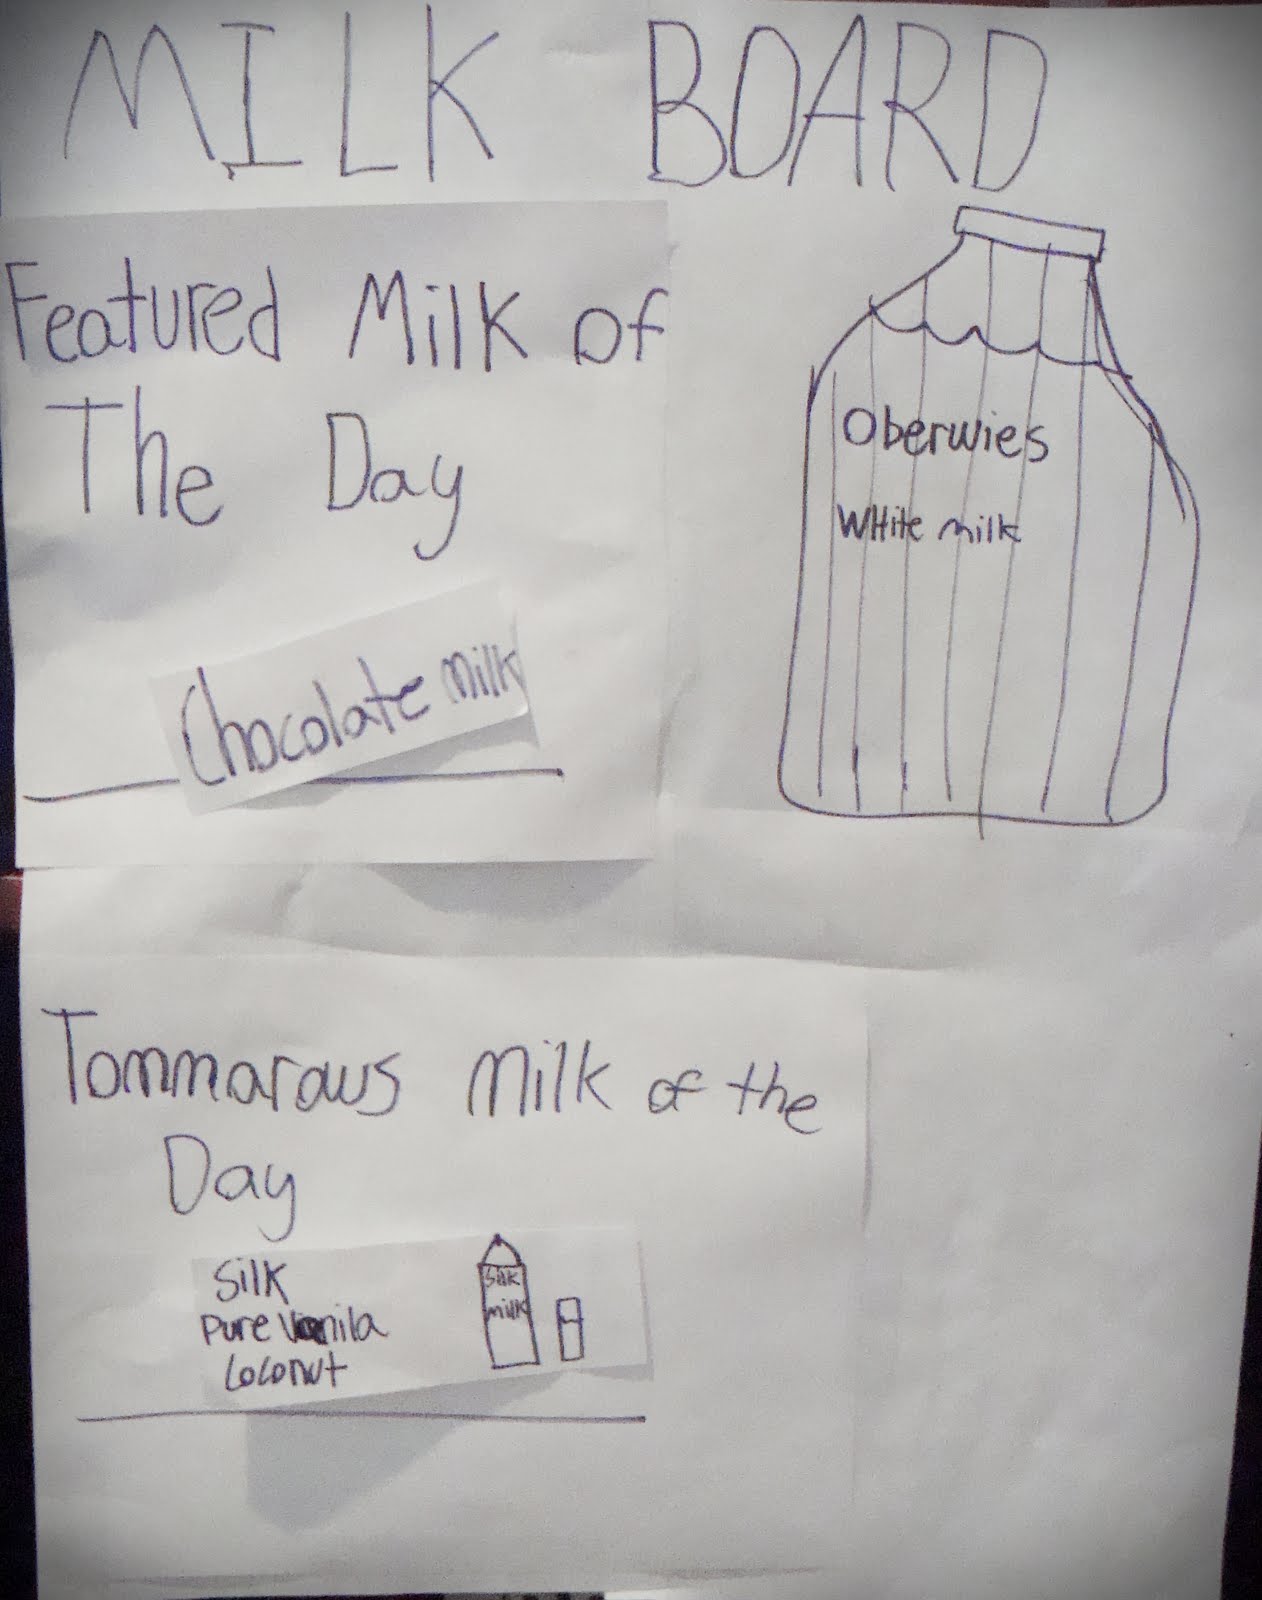 MILK BOARD
Featured Milk of
The Day
Chocolate milk
Oberwies
WHite milk
Tommarows milk of the
Day
Silk
Pure Vanila
Coconut
Silk
milk